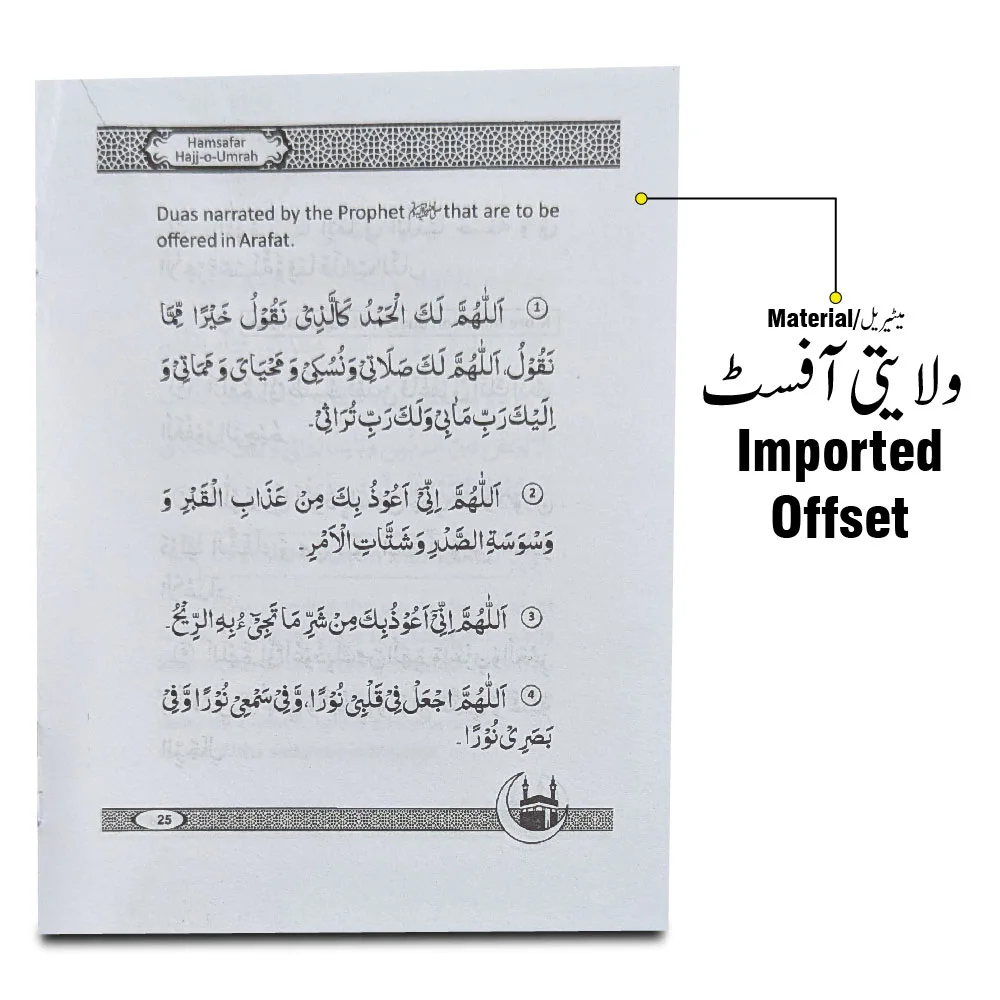 Hamsafar
Hajj-o-Umrah
Duas narrated by the Prophet ﷺ that are to be
offered in Arafat.
① اَللّٰهُمَّ لَكَ الْحَمْدُ كَالَّذِىْ نَقُوْلُ خَيْرًا مِّمَّا
نَقُوْلُ، اَللّٰهُمَّ لَكَ صَلَاتِىْ وَنُسُكِىْ وَ مَحْيَاىَ وَ مَمَاتِىْ وَ
اِلَيْكَ رَبِّ مَاٰبِىْ وَلَكَ رَبِّ تُرَاثِىْ۔
② اَللّٰهُمَّ اِنِّىْٓ اَعُوْذُ بِكَ مِنْ عَذَابِ الْقَبْرِ وَ
وَسْوَسَةِ الصَّدْرِ وَ شَتَّاتِ الْاَمْرِ۔
③ اَللّٰهُمَّ اِنِّىْٓ اَعُوْذُ بِكَ مِنْ شَرِّ مَا تَجِىْٓءُ بِهِ الرِّيْحُ۔
④ اَللّٰهُمَّ اجْعَلْ فِىْ قَلْبِىْ نُوْرًا، وَّفِىْ سَمْعِىْ نُوْرًا وَّفِىْ
بَصَرِىْ نُوْرًا۔
25
Material/میٹیریل
ولایتی آفسٹ
Imported
Offset